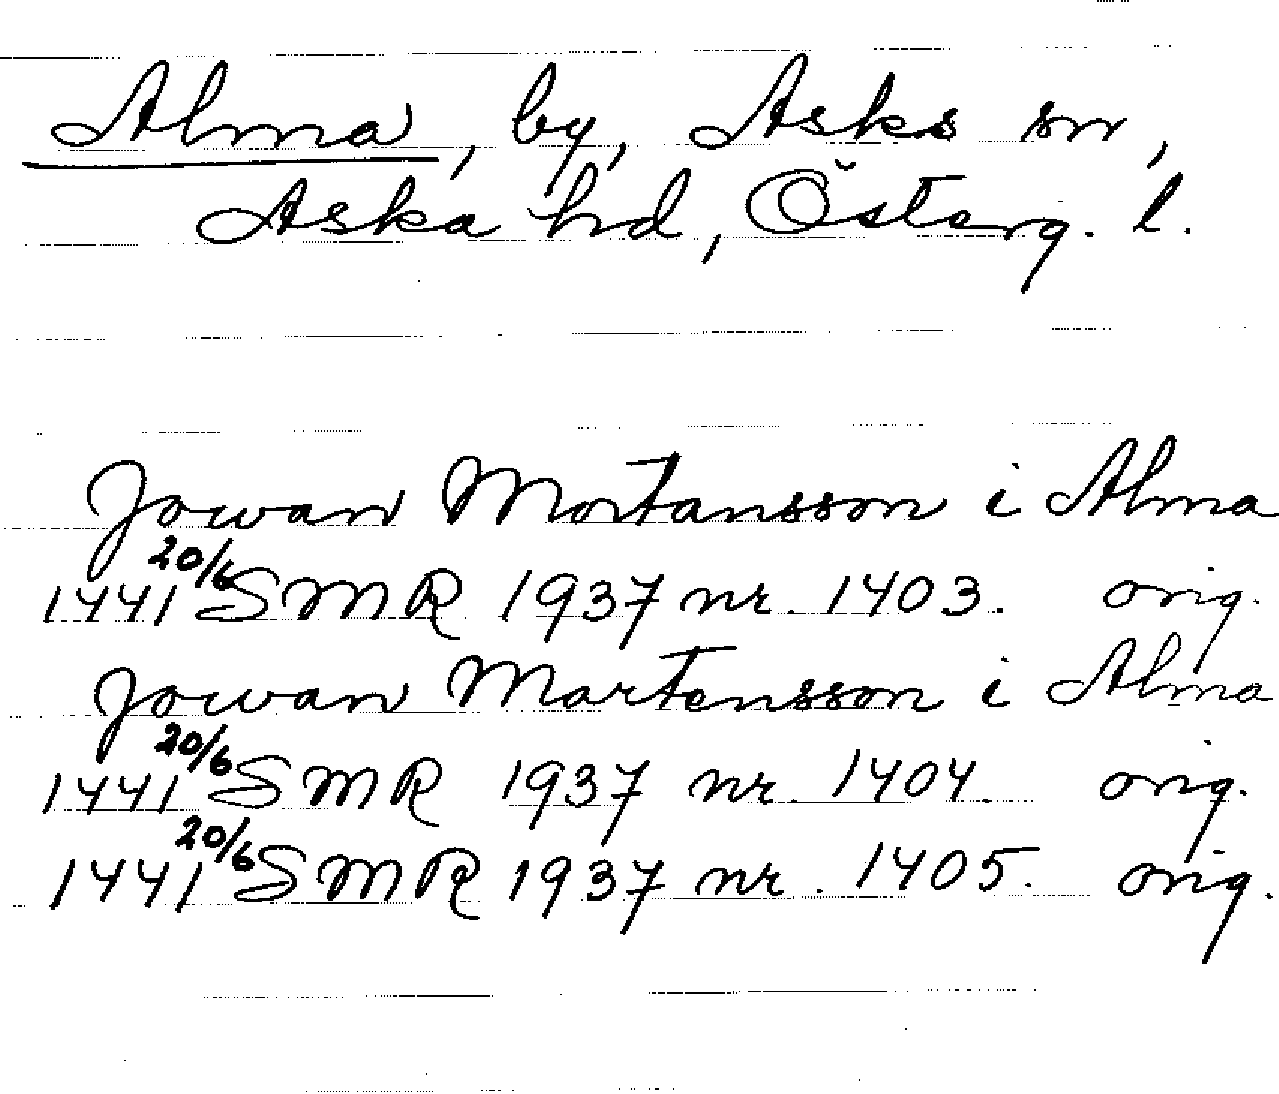 Alma, by, Asks sn,
Aska hd, Österg. l.
Jowan Mortansson i Alma
1441 20/6 SMR 1937 nr. 1403. orig.
Jowan Martensson i Alma
1441 20/6 SMR 1937 nr. 1404. orig.
1441 20/6 SMR 1937 nr. 1405. orig.